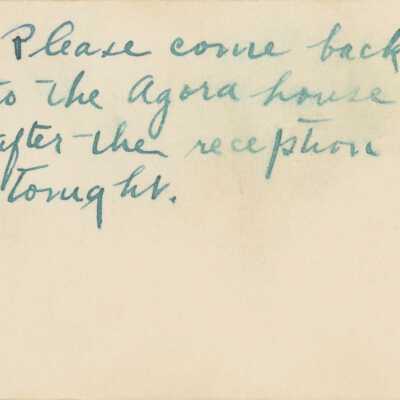 Please come back
to the Agora house
after the reception
tonight.